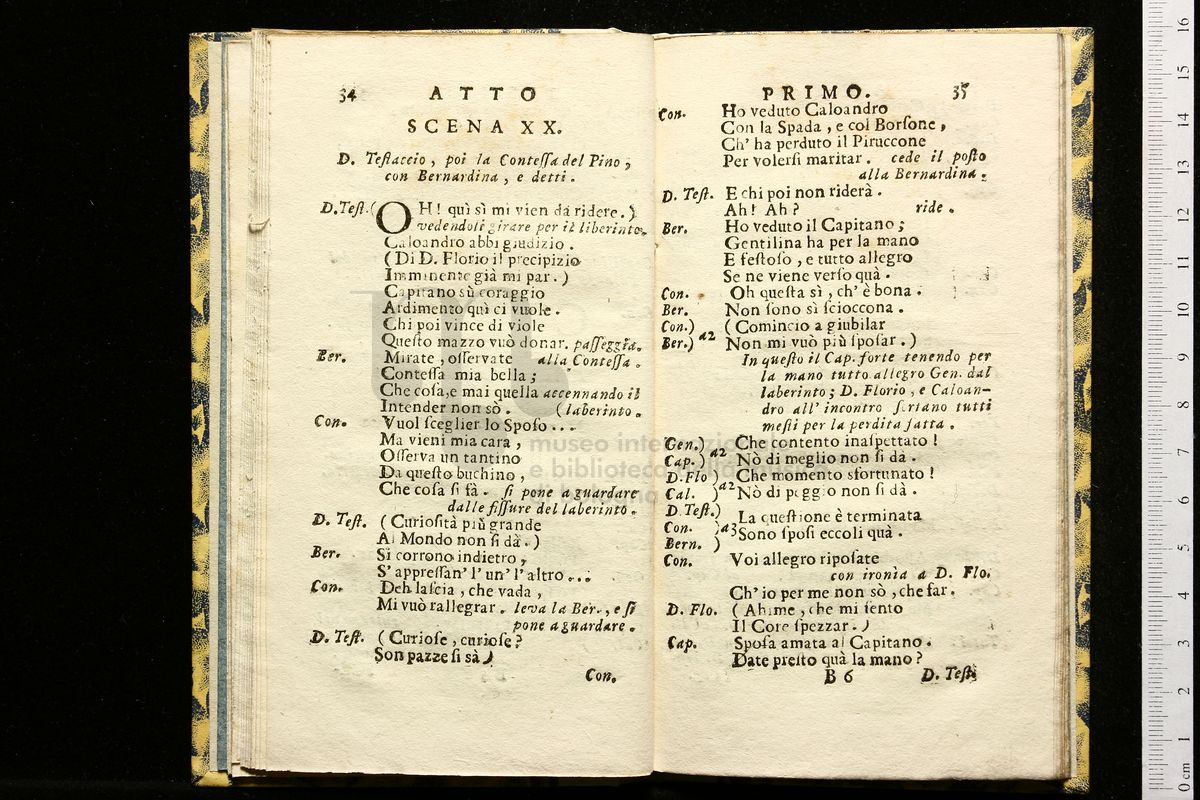 34 ATTO
SCENA XX.
D. Teſtaccio, poi la Conteſſa del Pino,
con Bernardina, e detti.
D. Teſt. (OH! quì sì mi vien da ridere.)
vedendoli girare per il liberinto.
Caloandro abbi giudizio.
(Di D. Florio il precipizio
Imminente già mi par.)
Capitano sù coraggio
Ardimento quì ci vuole.
Chi poi vince di viole
Queſto mazzo vuò donar. paſſeggia.
Ber. Mirate, oſſervate alla Conteſſa.
Conteſſa mia bella;
Che coſa, e mai quella accennando il
Intender non sò. (laberinto.
Con. Vuol ſceglier lo Spoſo...
Ma vieni mia cara,
Oſſerva un tantino
Da queſto buchino,
Che coſa ſi fà. ſi pone a guardare
dalle fiſſure del laberinto.
D. Teſt. (Curioſità più grande
Al Mondo non ſi dà.)
Ber. Si corrono indietro,
S' appreſſan' l' un' l' altro...
Con. Deh laſcia, che vada,
Mi vuò rallegrar. leva la Ber., e ſi
pone a guardare.
D. Teſt. (Curioſe, curioſe?
Son pazze ſi sà)
Con.
PRIMO. 35
Con. Ho veduto Caloandro
Con la Spada, e col Borſone,
Ch' ha perduto il Piruccone
Per volerſi maritar. cede il poſto
alla Bernardina.
D. Teſt. E chi poi non riderà.
Ah! Ah? ride.
Ber. Ho veduto il Capitano;
Gentilina ha per la mano
E feſtoſo, e tutto allegro
Se ne viene verſo quà.
Con. Oh queſta sì, ch' è bona.
Ber. Non ſono sì ſcioccona.
Con.) (Comincio a giubilar
Ber.) a2 Non mi vuò più ſpoſar.)
In queſto il Cap. forte tenendo per
la mano tutto allegro Gen. dal
laberinto; D. Florio, e Caloan-
dro all' incontro ſortano tutti
meſti per la perdita fatta.
Gen.) Che contento inaſpettato!
Cap.) a2 Nò di meglio non ſi dà.
D. Flo) Che momento sfortunato!
Cal. ) a2 Nò di peggio non ſi dà.
D. Teſt.) La queſtione è terminata
Con. ) a3 Sono ſpoſi eccoli quà.
Bern. )
Con. Voi allegro ripoſate
con ironia a D. Flo.
Ch' io per me non sò, che far.
D. Flo. (Ahime, che mi ſento
Il Core ſpezzar.)
Cap. Spoſa amata al Capitano.
Date preſto quà la mano?
B 6 D. Teſt.
museo internazionale
e biblioteca della musica
di bologna
16
15
14
13
12
11
10
9
8
7
6
5
4
3
2
1
0 cm